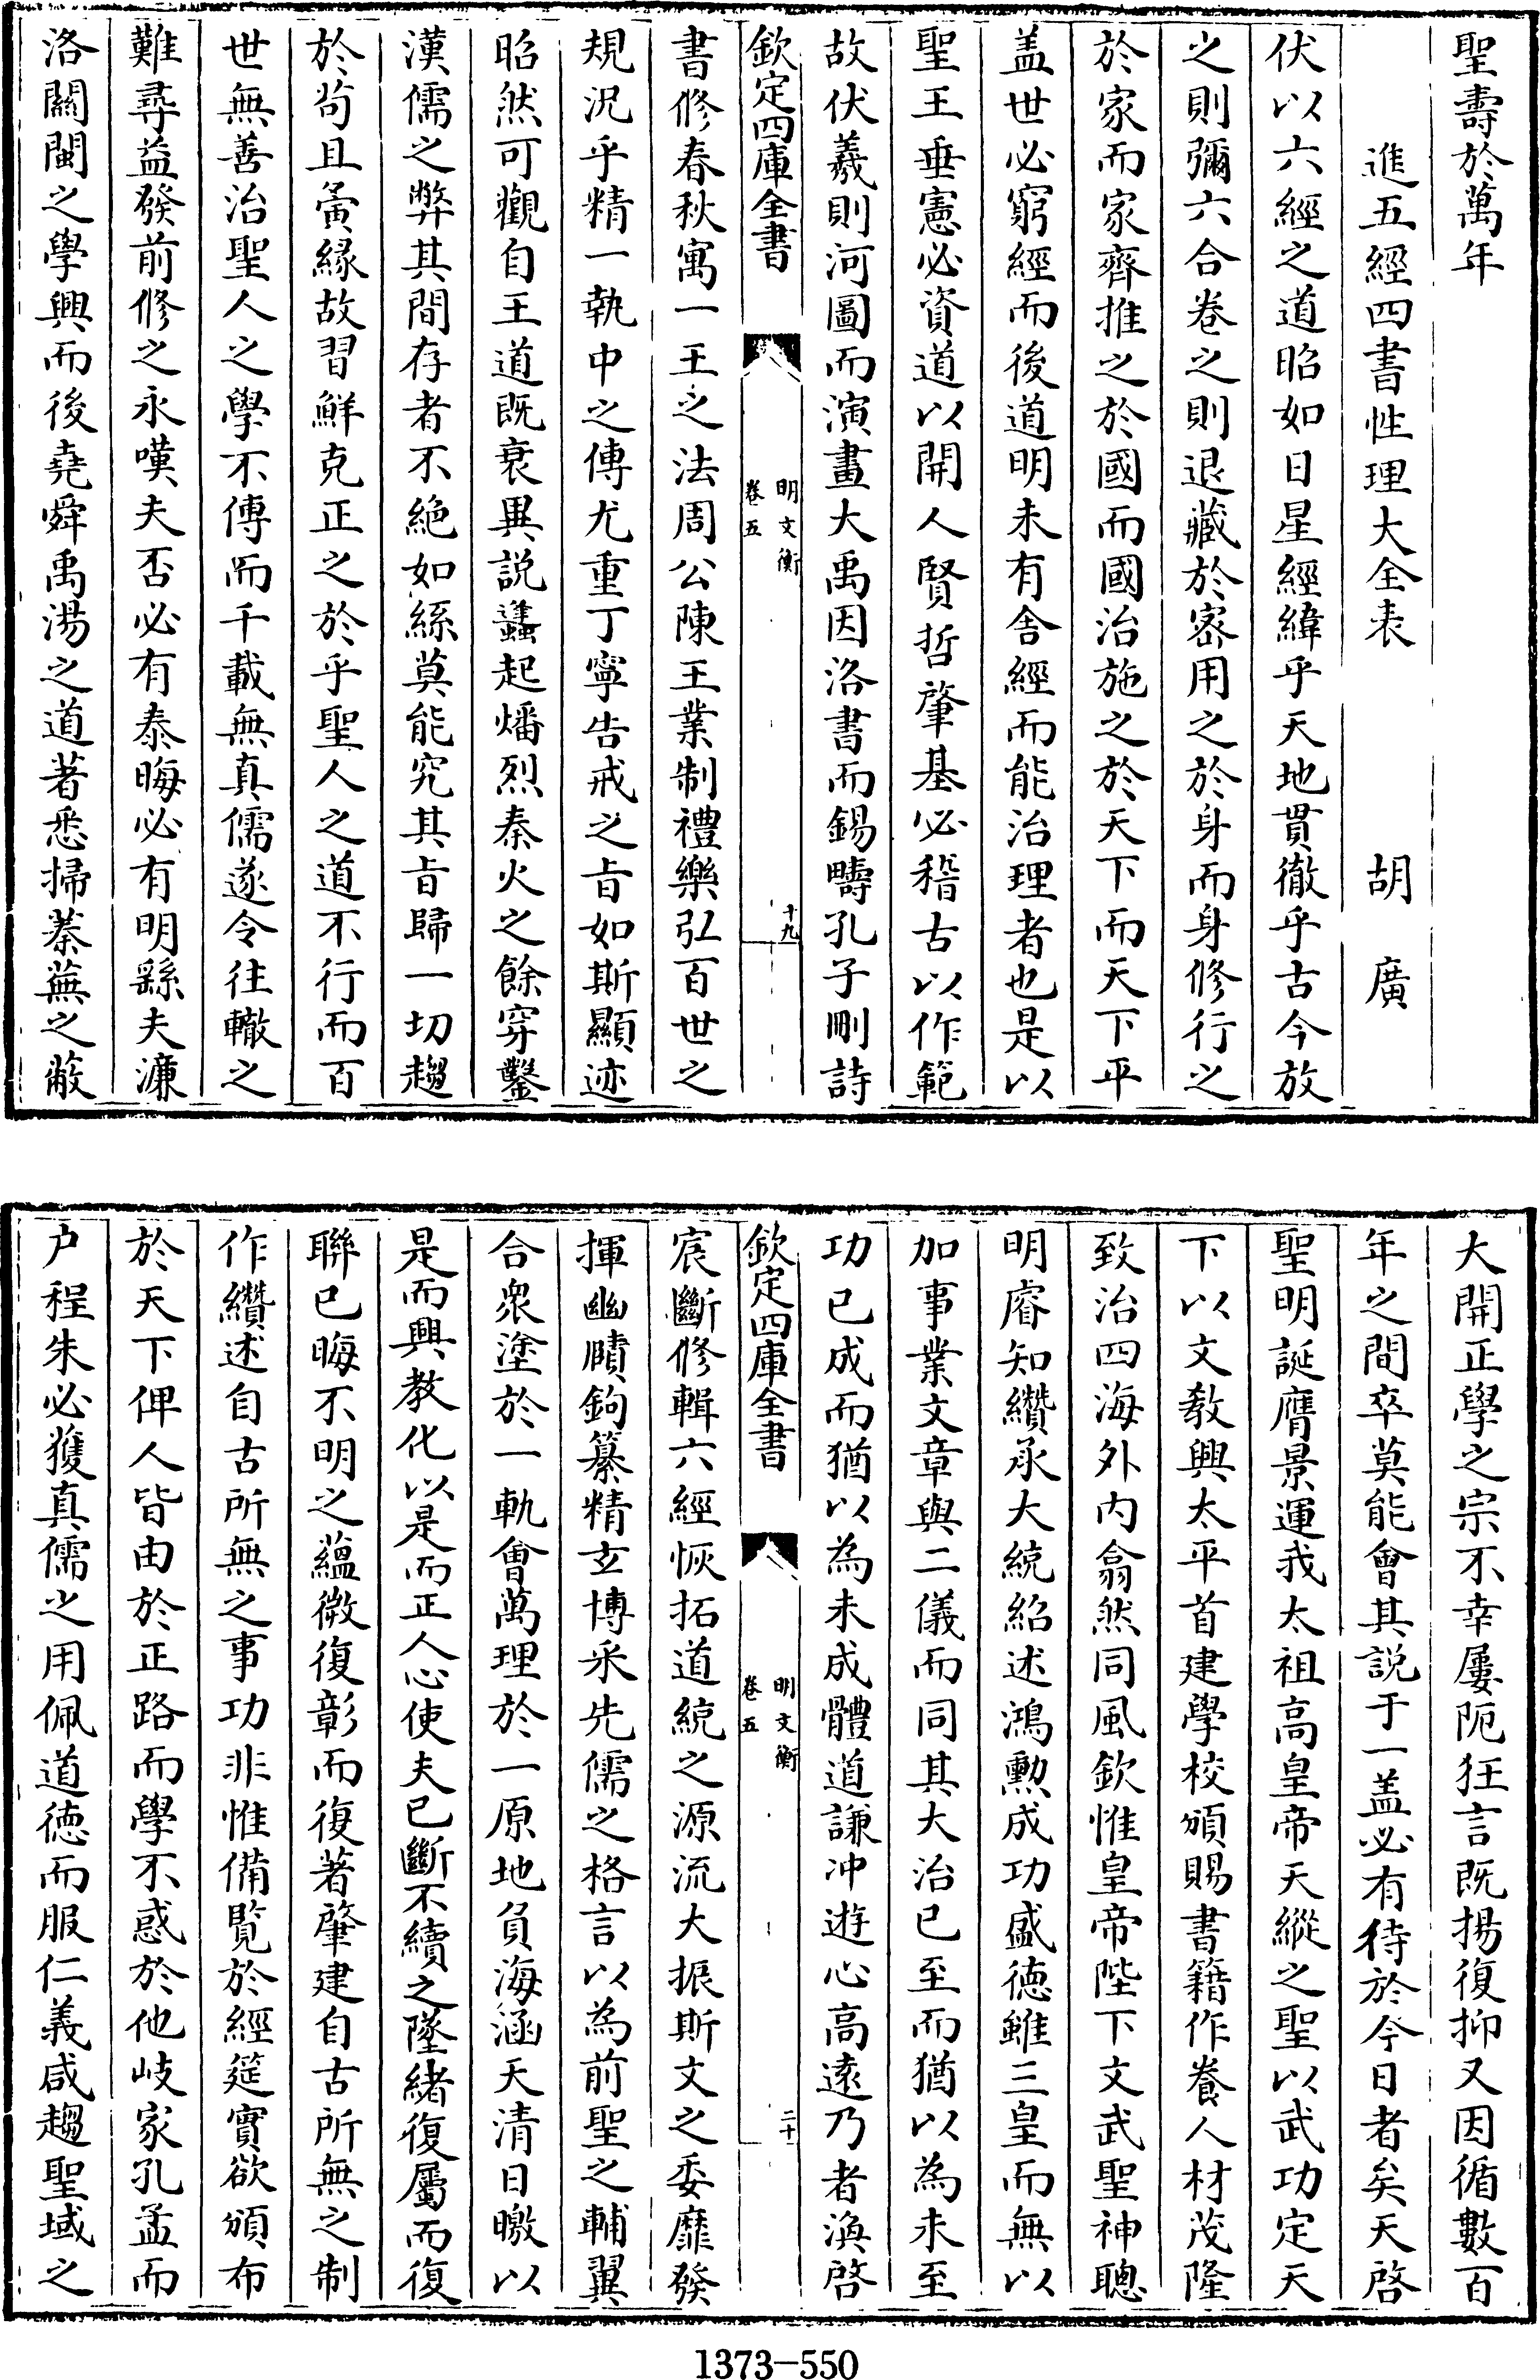 聖壽於萬年
進五經四書性理大全表　胡　廣
伏以六經之道昭如日星經緯乎天地貫徹乎古今放
之則彌六合卷之則退藏於宻用之於身而身修行之
於家而家齊推之於國而國治施之於天下而天下平
盖世必窮經而後道明未有舍經而能治理者也是以
聖王垂憲必資道以開人賢哲肇基必稽古以作範
故伏羲則河圖而演畫大禹因洛書而錫疇孔子刪詩
欽定四庫全書　明文衡　卷五　十九
書修春秋寓一王之法周公陳王業制禮樂弘百世之
規況乎精一執中之傳尤重丁寧告戒之旨如斯顯迹
昭然可觀自王道既衰異説蠭起燔烈秦火之餘穿鑿
漢儒之弊其間存者不絶如絲莫能究其旨歸一切趨
於茍且夤緣故習鮮克正之於乎聖人之道不行而百
世無善治聖人之學不傳而千載無真儒遂令往轍之
難尋益發前修之永嘆夫否必有泰晦必有明繇夫濂
洛關閩之學興而後堯舜禹湯之道著悉掃蓁蕪之蔽
大開正學之宗不幸屢阨狂言既揚復抑又因循數百
年之間卒莫能會其説于一盖必有待於今日者矣天啓
聖明誕膺景運我太祖高皇帝天縱之聖以武功定天
下以文敎興太平首建學校頒賜書籍作養人材茂隆
致治四海外內翕然同風欽惟皇帝陛下文武聖神聰
明睿知纘承大統紹述鴻勲成功盛德雖三皇而無以
加事業文章與二儀而同其大治已至而猶以為未至
功已成而猶以為未成體道謙冲遊心高遠乃者渙啓
欽定四庫全書　明文衡　卷五　二十
宸斷修輯六經恢拓道統之源流大振斯文之委靡發
揮幽賾鉤纂精玄博采先儒之格言以為前聖之輔翼
合衆塗於一軌會萬理於一原地負海涵天清日皦以
是而興教化以是而正人心使夫已斷不續之墜緒復屬而復
聯已晦不明之蘊微復彰而復著肇建自古所無之制
作纘述自古所無之事功非惟備覽於經筵實欲頒布
於天下俾人皆由於正路而學不惑於他岐家孔孟而
户程朱必獲真儒之用佩道德而服仁義咸趨聖域之
1373-550